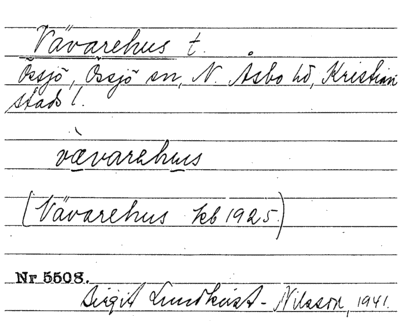 Vävarehus t.
Össjö, Össjö sn, N. Åsbo hd, Kristian
stads l.
vævarehus
(Vävarehus kb 1925)
Nr 5508.
Birgit Lundkvist-Nilsson, 1941.